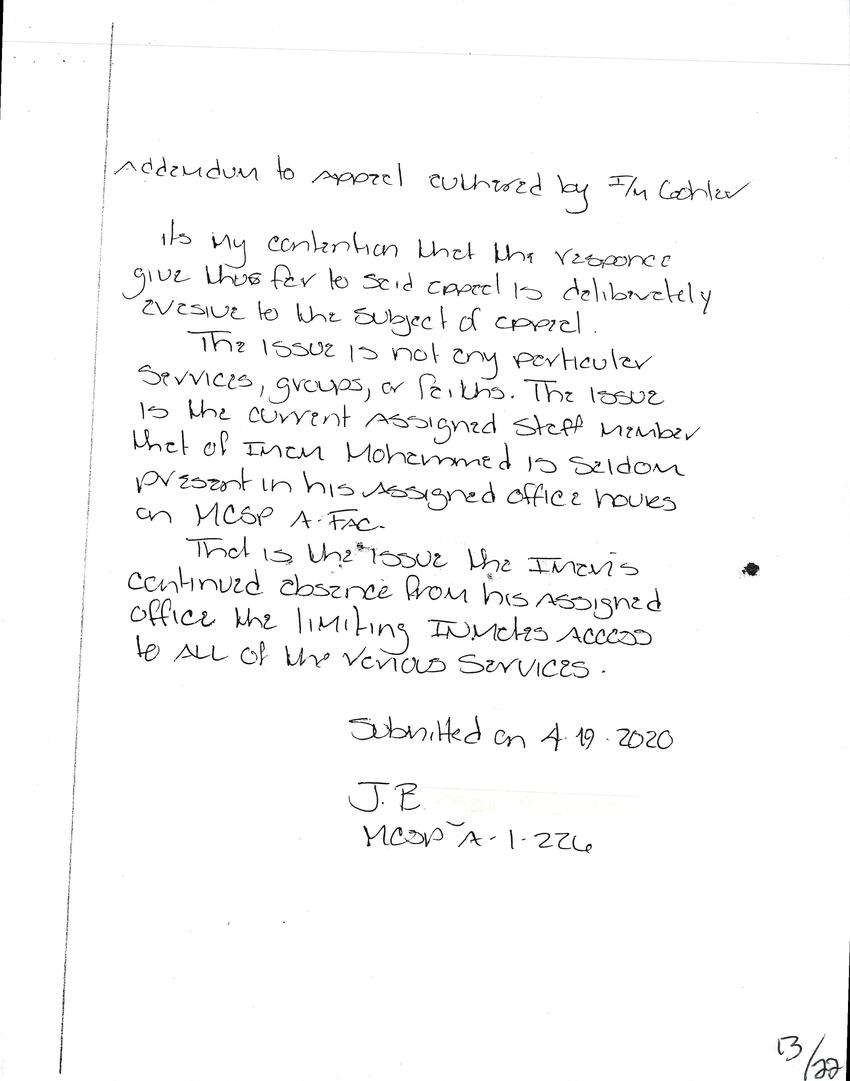 Addendum to Appeal authored by I/M Cochler
its my contention that the responce
give thus far to said appeal is deliberately
evasive to the subject of appeal.
The issue is not any particular
Services, groups, or faiths. The issue
is the current Assigned Staff Member
that of Imam Mohammed is Seldom
present in his Assigned office houes
on MCSP A-FAC.
That is the issue the Imam's
continued absence from his Assigned
office the limiting Inmates Access
to ALL of the various Services.
Submitted on 4.19.2020
J.B
MCSP A-1-226
13/22